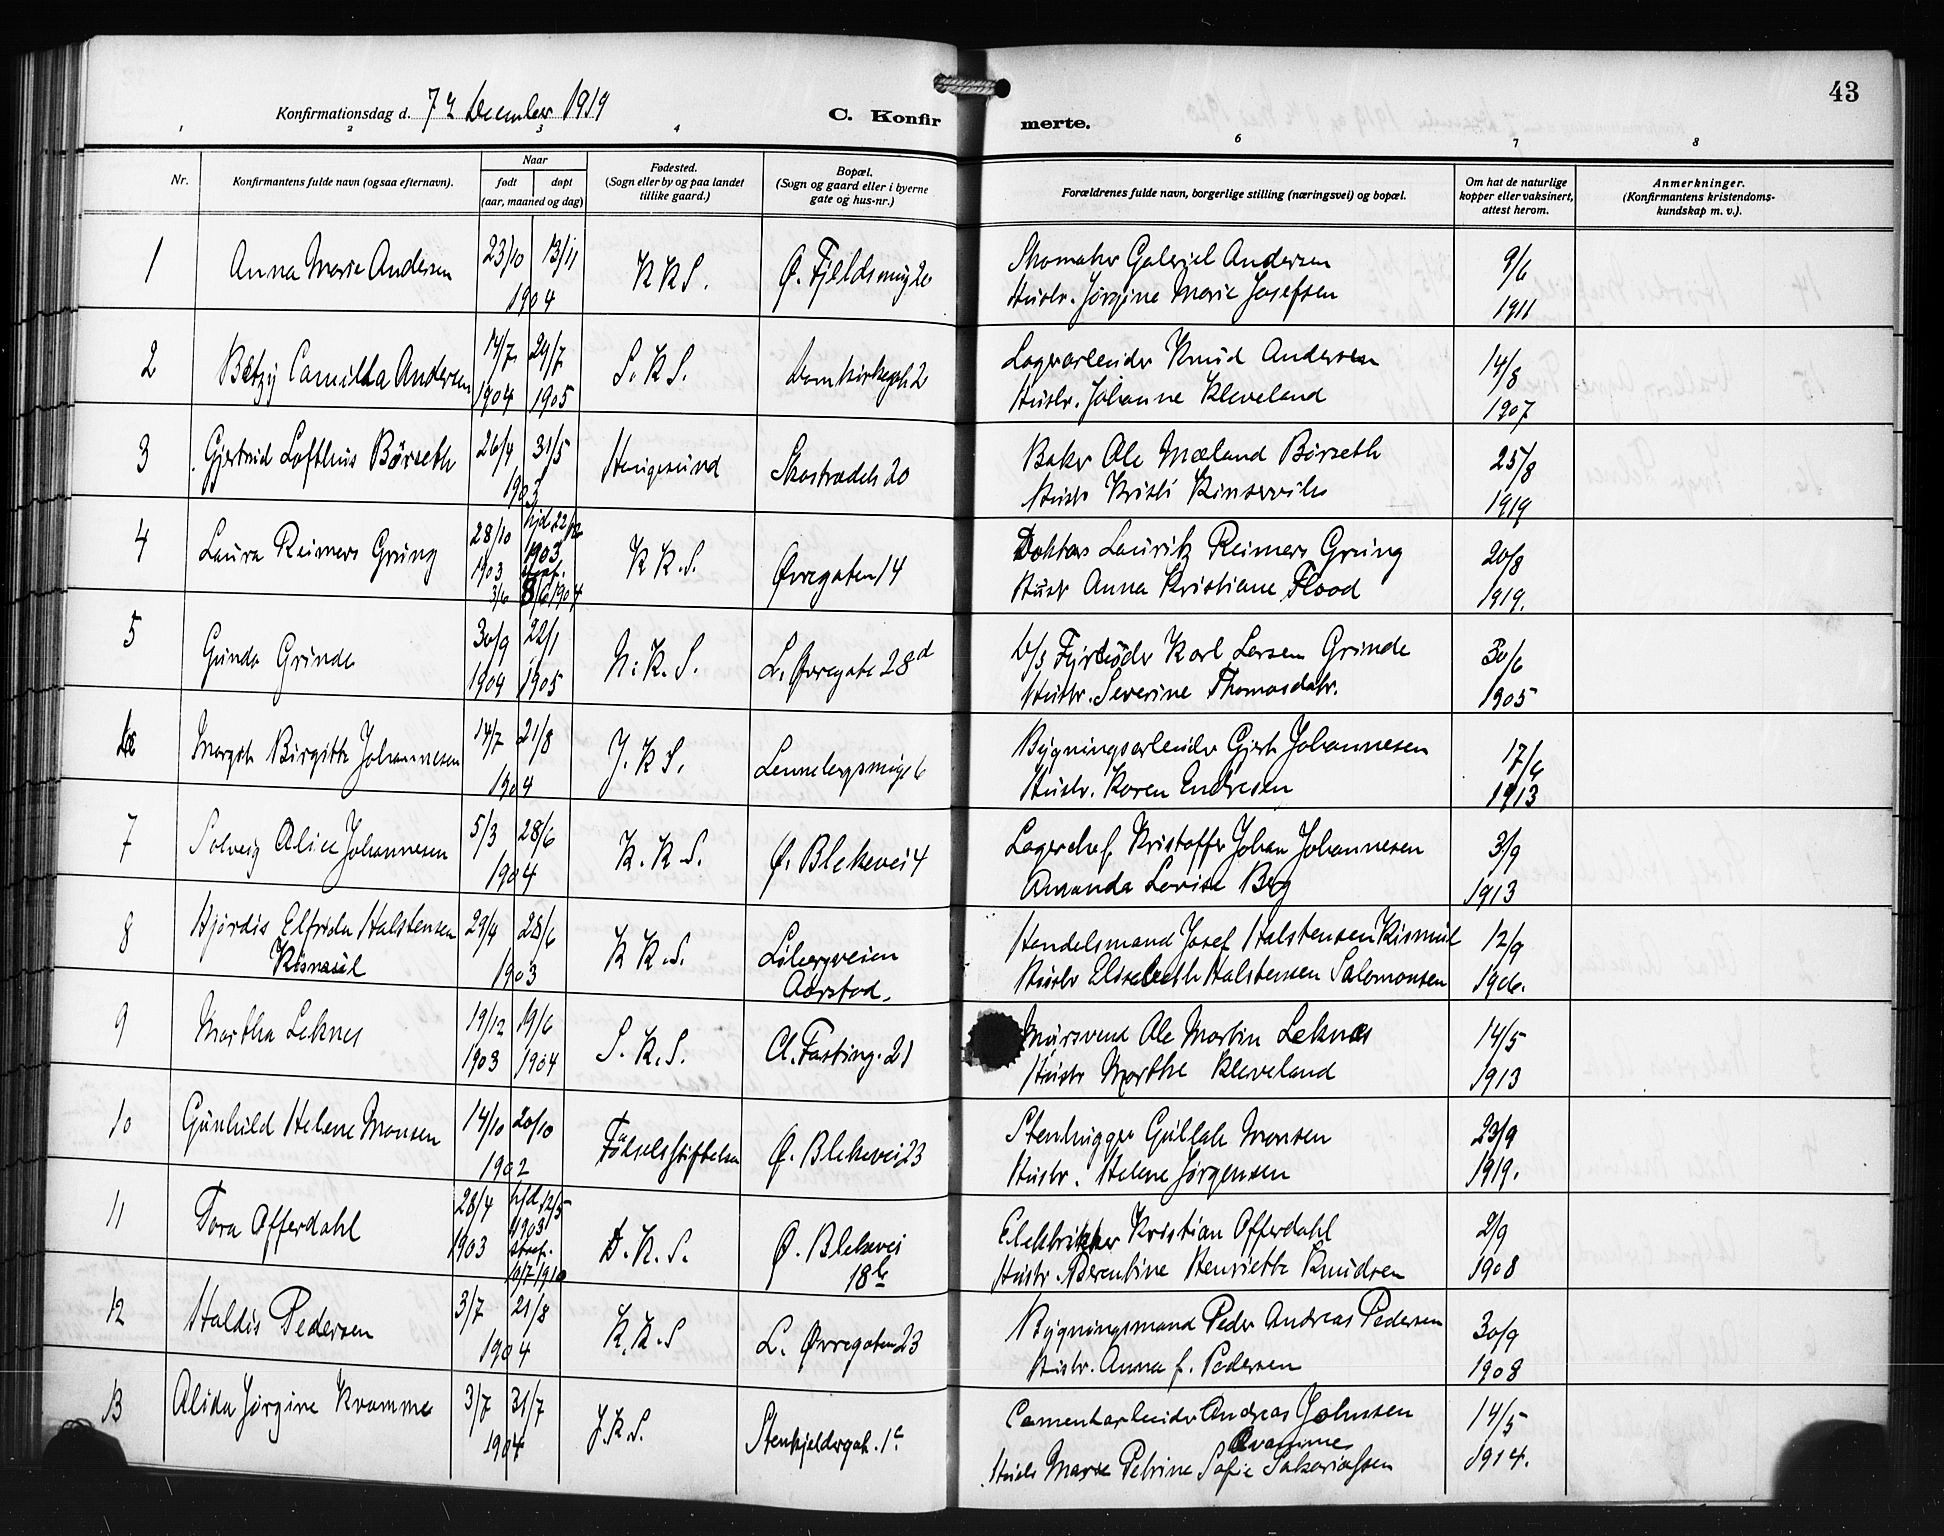 43
Konfirmationsdag d. 7de December 1919
C. Konfirmerte.
1 2 3 4 6 7 8
Nr.
Konfirmantens fulde navn (ogsaa efternavn).
Naar
født
døpt
(aar, maaned og dag)
Fødested.
(Sogn eller by og paa landet
tillike gaard.)
Bopæl.
(Sogn og gaard eller i byerne
gate og hus-nr.)
Forældrenes fulde navn, borgerlige stilling (næringsvei) og bopæl.
Om hat de naturlige
kopper eller vaksinert,
attest herom.
Anmerkninger.
(Konfirmantens kristendoms-
kundskap m. v.).
1 Anna Marie Andersen 23/10 13/11 1904 K K S. Ø. Fjeldsmug 20
Skomaker Gabriel Andersen
Hustr. Jørgine Marie Josefsen
9/6 1911
2 Betzy Camilla Andersen 14/7 1904 29/7 1905 S. K S. Domkirkegt 2
Lagerarbeider Knud Andersen
Hustr. Johanne Kleveland
14/8 1907
3 Gjertrud Lofthus Børseth 26/4 31/5 1903 Haugesund Skostrædet 20
Baker Ole Mæland Børseth
Hustr Kristi Kinservik
25/8 1919
4 Laura Reimers Grung 28/10 1903 hjd. 22/12 1903 K K. S. Øvregaten 14
Doktor Lauritz Reimers Grung
Hustr Anna Kristiane Flood
20/8 1919.
5 Gunda Grinde 30/9 1904 22/1 1905 N. K. S. L. Øvregate 28d
d/s Fyrbøder Karl Larsen Grinde
Hustr. Severine Thomasdatr.
30/6 1905
Margit Birgitte Johannesen 14/7 21/8 1904 J. K S. Lennebergsmug 6
Bygningsarbeider Gjert Johannesen
Hustr. Karen Endresen
17/6 1913
7 Solveig Alice Johannesen 5/3 28/6 1904 K. K. S. Ø. Blekevei 4
Lagerchef Kristoffer Johan Johannesen
Amanda Lovise Berg
3/9 1913
8 Hjørdis Elfrida Halstensen 29/4 28/6 1903 K K. S. Libergveien
Kismul
Aarstad.
Handelsmand Josef Halstensen Kismul
Hustr Elisabeth Halstensen Salomonsen
12/9 1906.
9 Martha Leknes 19/12 1903 19/6 1904 S. K. S. Cl. Fasting. 21
Mursvend Ole Martin Leknes
Hustr Marthe Kleveland
14/5 1913
10 Gunhild Helene Monsen 14/10 20/10 1902 Fødselsstiftelsen Ø. Blekevei 23
Stenhugger Gullak Monsen
Hustr. Helene Jørgensen
23/9 1919.
11 Tora Offerdahl 28/4 1903 hjd. 12/5 1903 stadf. 10/7 1910 D. K. S. Ø. Blekevei
18b
Elektriker Kristian Offerdahl
Hustr. Berentine Henriette Knudsen
2/9 1908
12 Haldis Pedersen 3/7 21/8 1904 K. K. S L. Øvregaten 23
Bygningsmand Peder Andreas Pedersen
Hustr. Anna f. Pedersen
30/9 1908
13 Alida Jørgine Kvamme 3/7 31/7 1904 J. K. S. Stenkjeldergt. 1c
Cementarbeider Andreas Johnsen
Kvamme
Hustr Marie Petrine Sofie Sakariassen
14/5 1914.